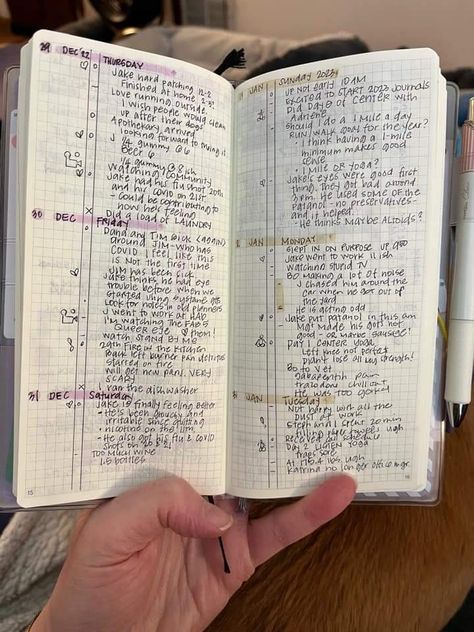 29 DEC '22 THURSDAY
Jake hard patching 12-2
Finished at home. 2-3:
Love running outside -
I wish people would clean
up after their dogs
Apothekary arrived
looking forward to trying it
1/4 gummy @ 6
Beer 6
1/4 gummy @ 8 ish
Watching COMMUNITY
Jake had his flu shot 20th
and his COVID on 21st
could be contributing to
how he's feeling
Did a load of LAUNDRY
30 DEC Friday
Dana and Tim sick (again)
around Jim - who has
COVID I feel like this
is not the first time
Jim has been sick
Jake thinks he had eye
trouble before when we
started using systane gtts
Look for notes in old planners
J went to work at LAD
I'm watching the FAB 5
QUEER EYE ♡ them!
watch STAND BY ME
29th Fire in the kitchen
back left burner pan
started on fire
will get new pan. VERY
SCARY
I ran the dishwasher
31 DEC Saturday
Jake is finally feeling better
He's been grouchy and
irritable since quitting
nicotine on the 11th
He also got his flu & COVID
shots on 20 & 21
TOO MUCH WINE
1.5 bottles
15
1 JAN Sunday 2023
up not early 10 AM
Excited to START 2023 Journals
Did Day 5 of CENTER with
Adriene
Should I do a 1 mile a day
RUN/WALK goal for the year?
I think having a 1 mile
minimum makes good
sense
1 MILE OR YOGA?
Jake's eyes were good first
thing. They got bad around
3 pm. He used some of the
patanol - no preservatives -
and it helped.
He thinks maybe Altoids?
2 JAN MONDAY
Slept in on purpose up 900
Jake went to work 11 ish
watching stupid TV
BE making a lot of noise
I chased him around the
car when he got out of
the yard
He is acting odd
Jake put patanol in this am
Mgi made his golf not
good - or maybe sausage?
DAY 1 CENTER YOGA
Left knee not perfect
Didn't lose all my strength!
Bo to vet
Gabapentin pain
trazodone chill out
He was too good!
3 JAN Tuesday
Not happy with all the
DUST at work
Steph and I spent 20 min
filling mole tubes ugh
Received call schedule
Day 2 CENTER YOGA
traps sore
At 175.4 lbs ugh
Katrina no longer office mgr
16